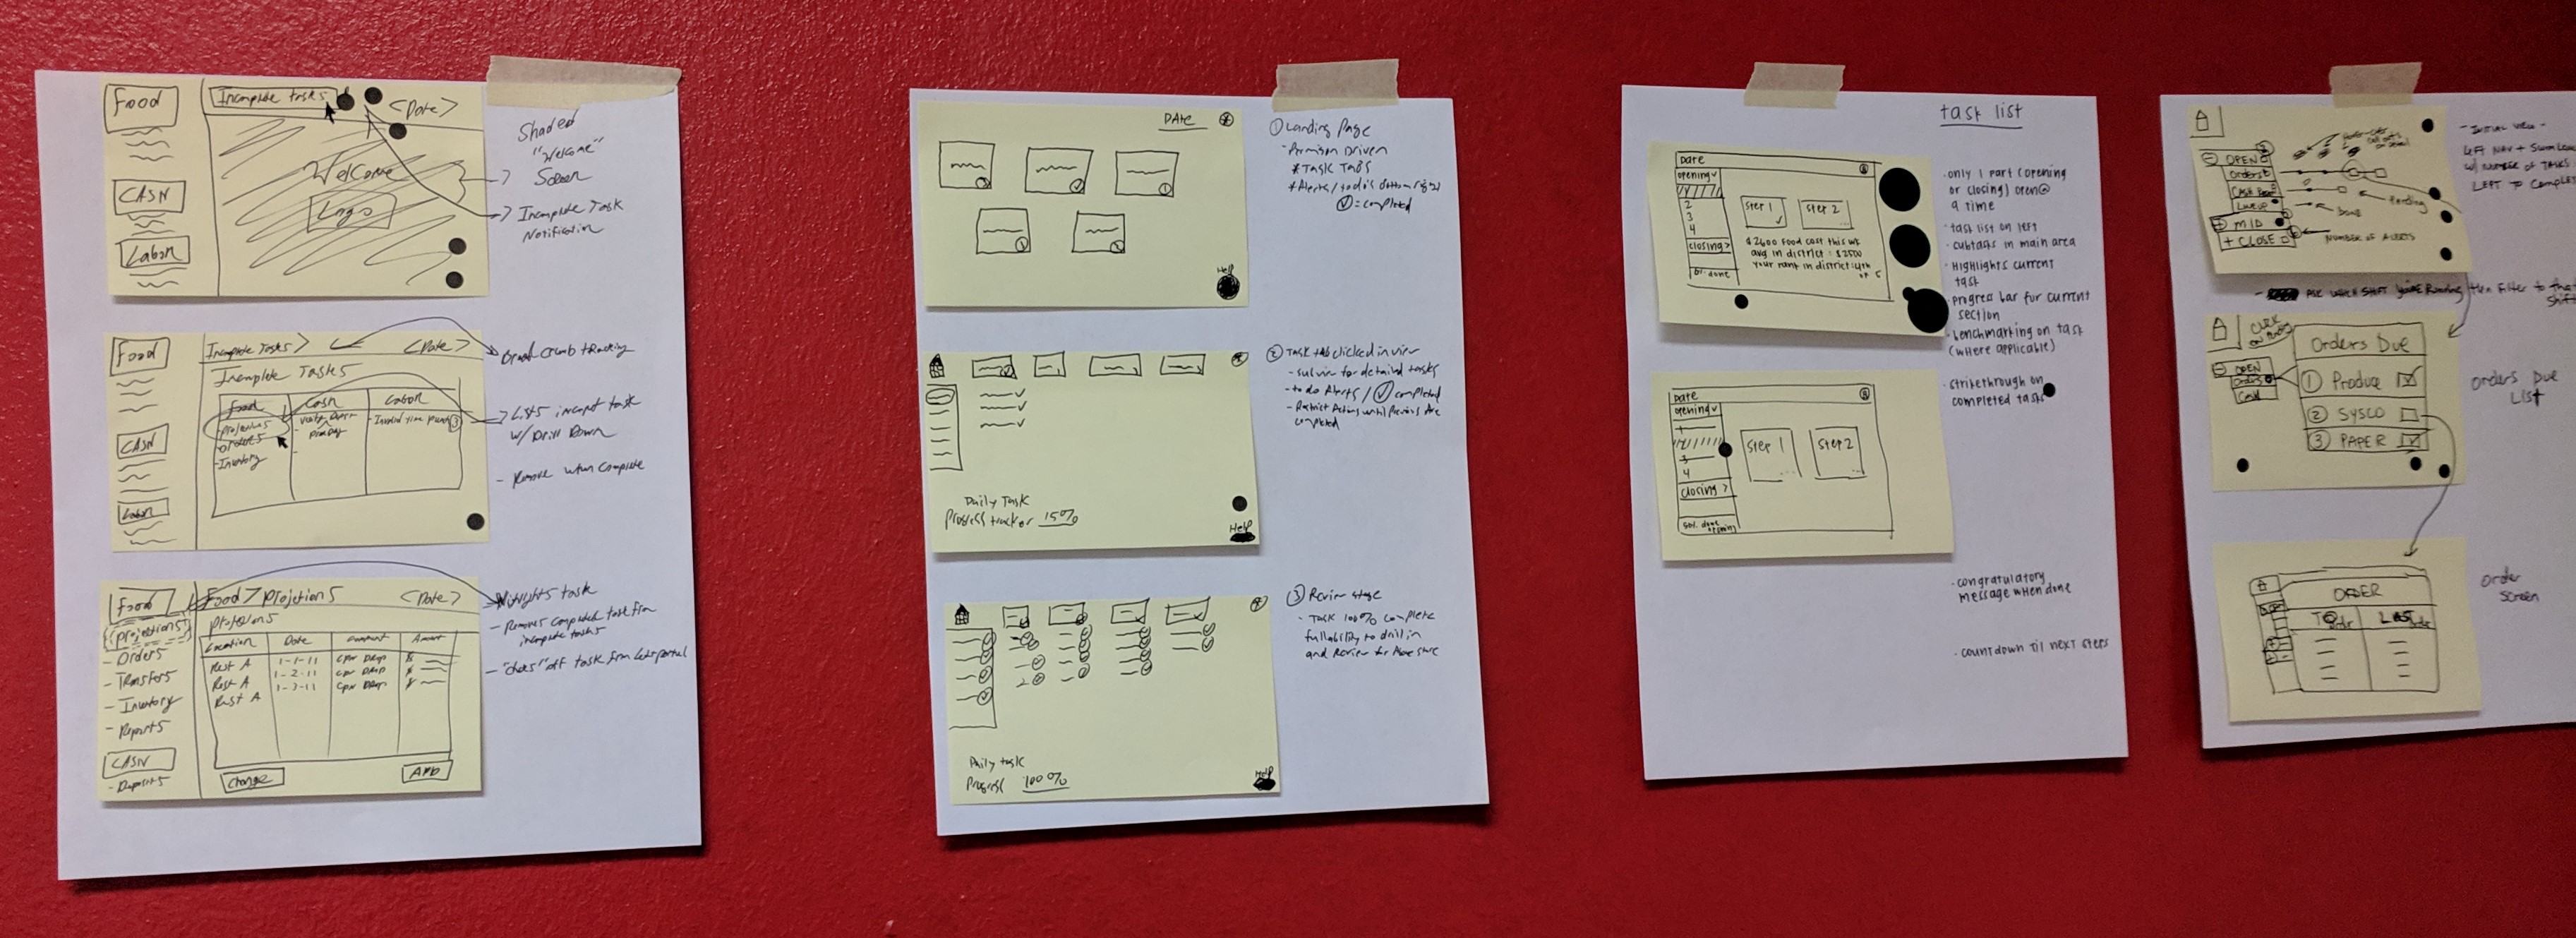 Food
Incomplete tasks
<Date>
Welcome
Logo
CASH
Labor
Shaded
"Welcome"
Screen
Incomplete Task
Notification
Food
Incomplete Tasks >
<Date>
Incomplete Tasks
Food
Cash
Labor
- Projections
- Orders
- Inventory
- Invalid time punch 3
CASH
Labor
Bread crumb tracking
- Lists incompt task
w/ Drill Down
- Remove when complete
Food
Food > Projections
<Date>
Projections
Projections
Location
Date
Comment
Amount
Rest A
1-1-11
Rest A
1-2-11
Rest A
1-3-11
Rest A
- Orders
- Transfers
- Inventory
- Reports
CASH
- Deposits
Change
Add
Highlights task
- Removes completed task from
incomplete tasks
- "checks" off task from left portal
DAte
Help
① Landing Page
- Permission Driven
* Task TABS
* Alerts / todo's bottom right
✓ = completed
Daily Task
Progress tracker 15%
Help
② Task tab clicked in view
- sub view for detailed tasks
- to do Alerts / ✓ completed
- Restrict Actions until Previous are
completed
Daily task
Progress 100%
Help
③ Review stage
- Task 100% complete
full ability to drill in
and Review for Above store
task list
Date
opening
2
3
4
closing >
step 1
step 2
$2600 food cost this wk
avg in district: $2500
your rank in district: 4th
of 5
• only 1 part (opening
or closing) open @
a time
• task list on left
• subtasks in main area
• Highlights current
task
• progress bar for current
section
• benchmarking on task
(where applicable)
• strikethrough on
completed tasks
Date
opening
3
4
closing >
step 1
step 2
• congratulatory
message when done
• countdown til next steps
OPEN
Orders
LINEUP
MID
+ CLOSE
Pending
Done
NUMBER OF ALERTS
- INITIAL VIEW -
LEFT NAV +
w/ NUMBER OF TASKS
LEFT TO COMPLET
ASK WHICH SHIFT YOU'RE Running, then Filter to that
Shift
CLICK
OPEN
Orders
Orders Due
① Produce
② SYSCO
③ PAPER
Orders Due
List
ORDER
Order
Screen